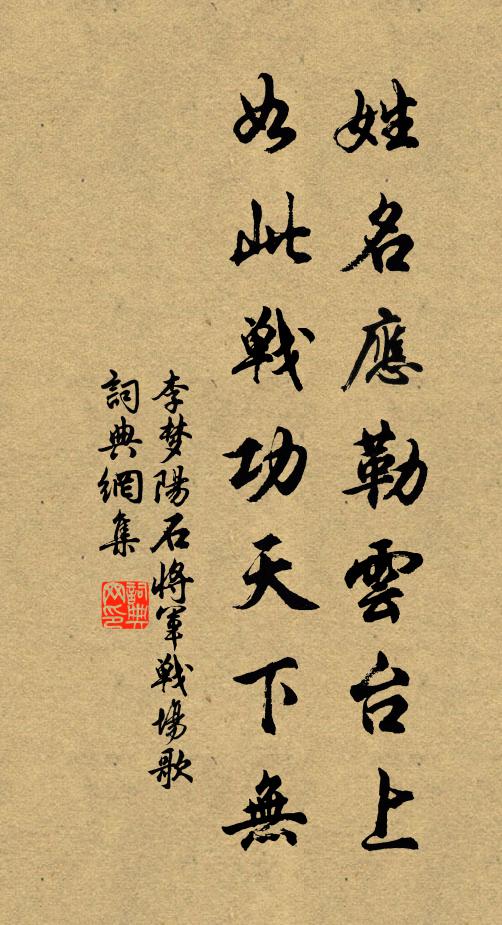 姓名應勒雲台上
如此戰功天下無
李梦陽石將軍戰場歌
詞典網集
詞典网印